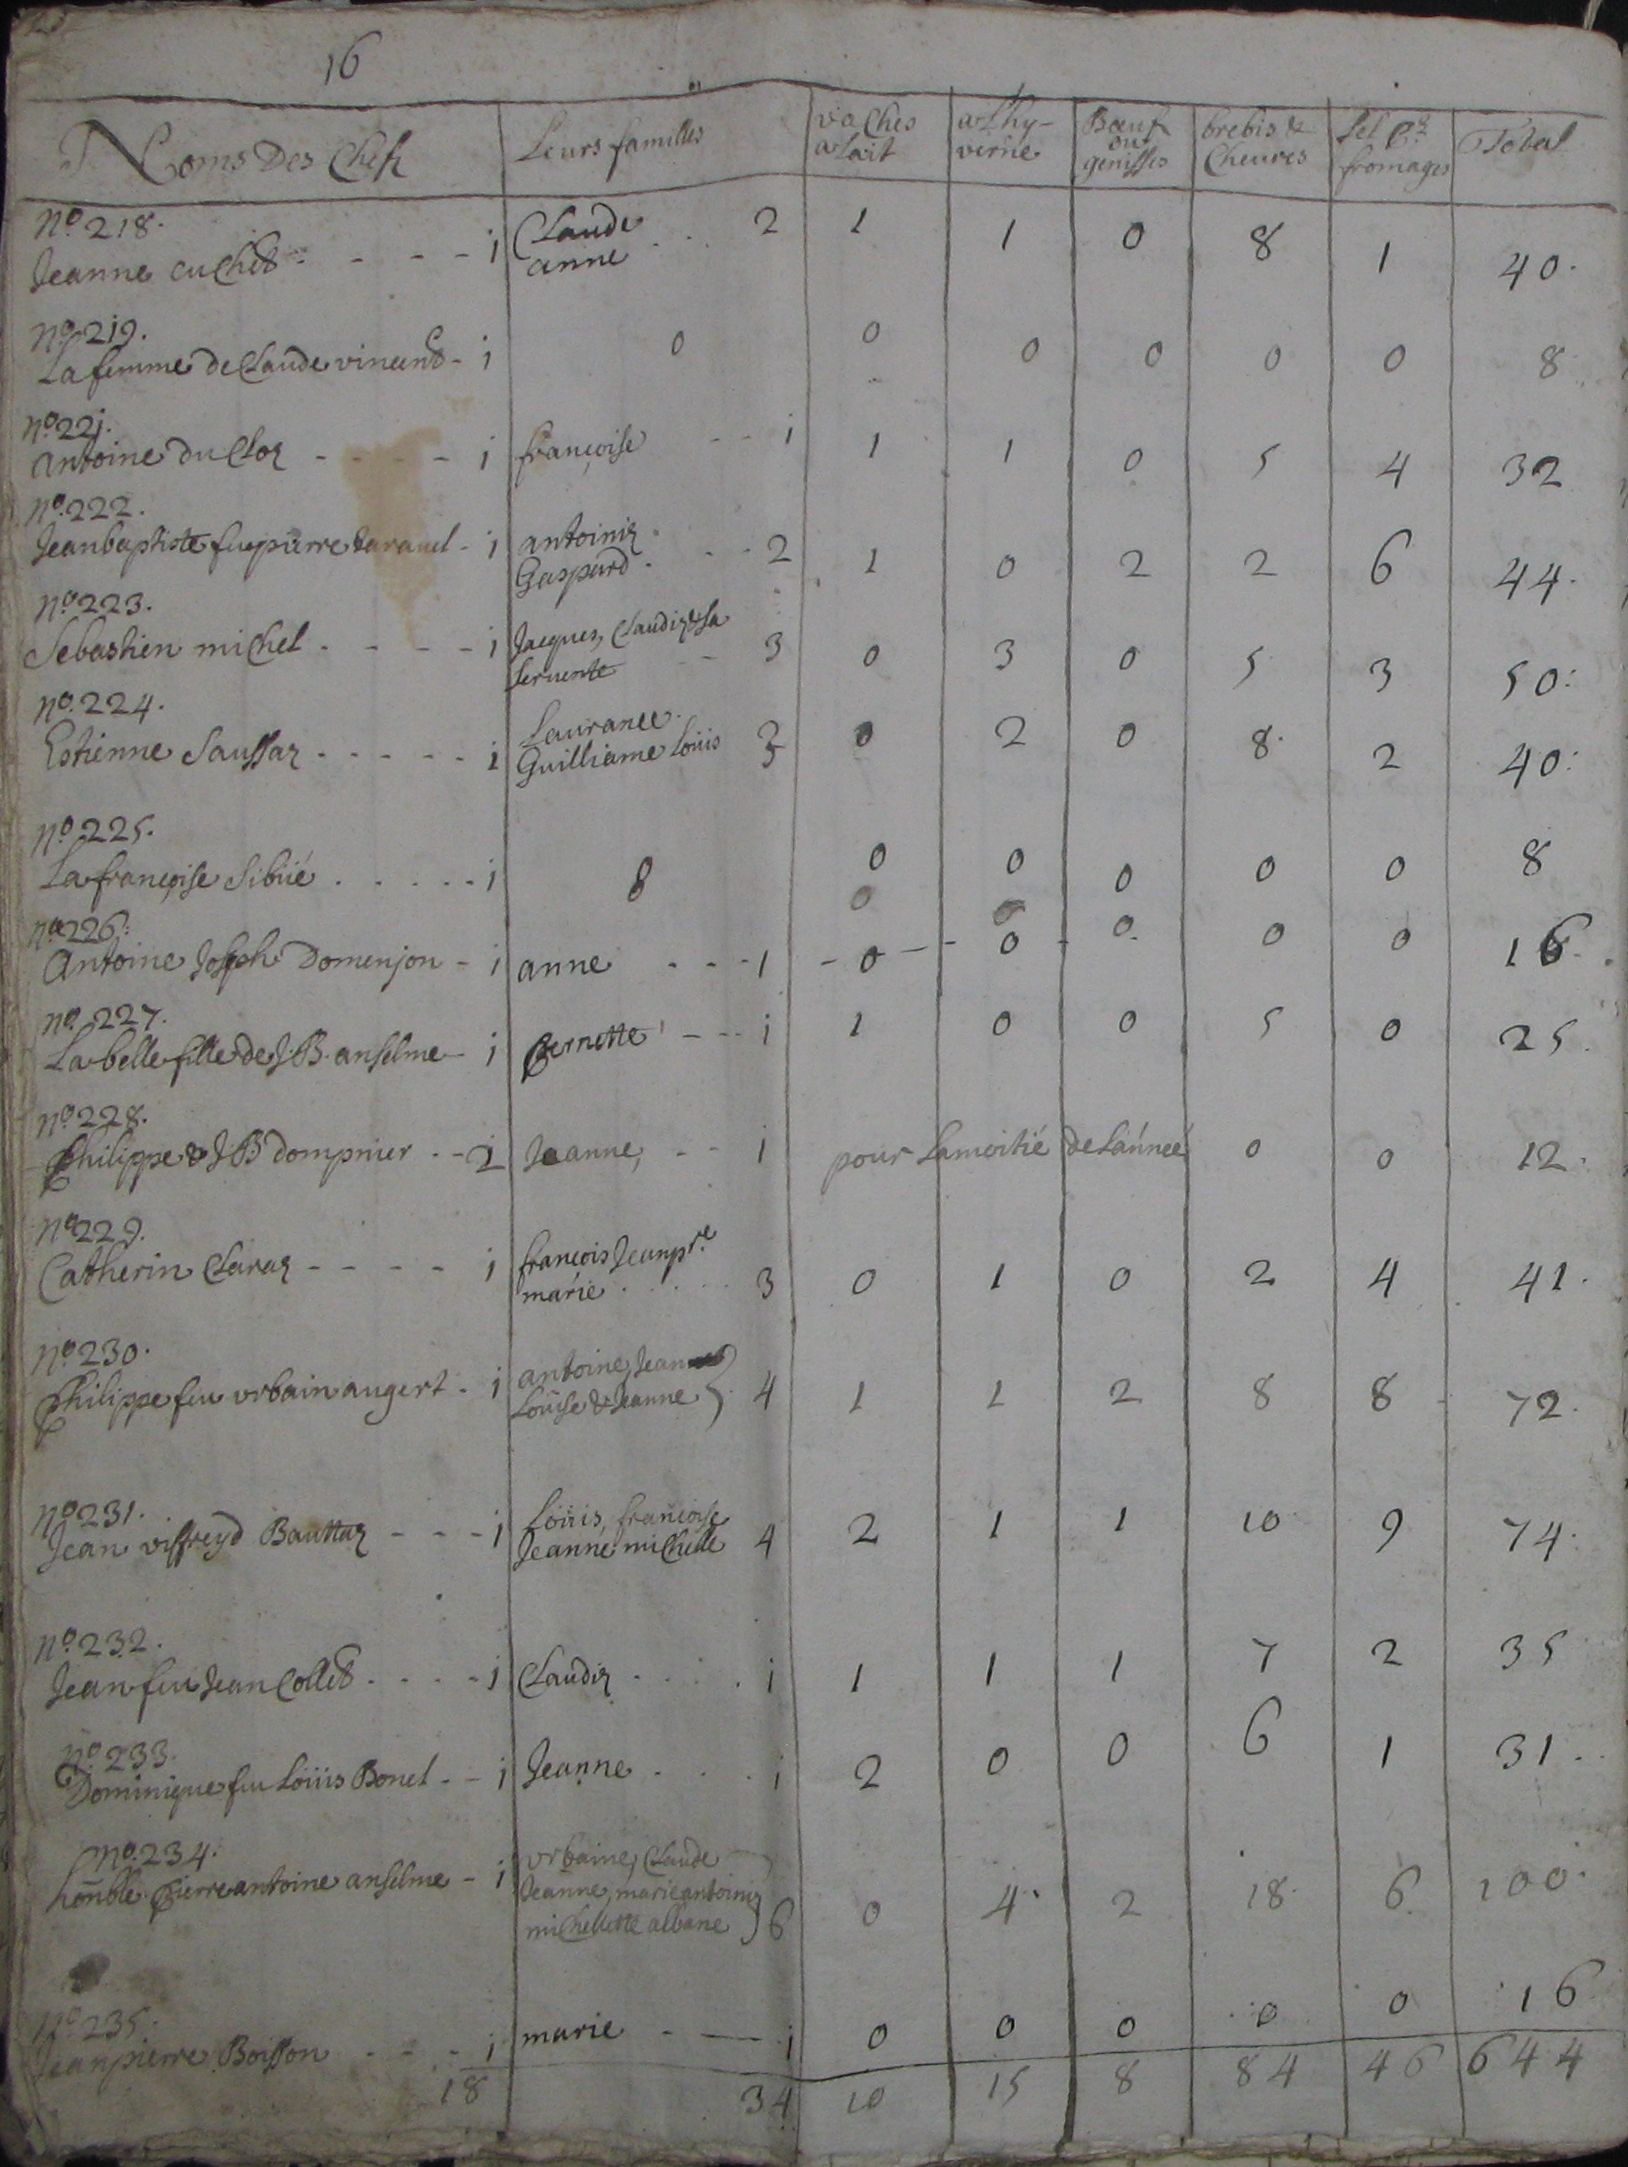 16
Noms Des Chefz Leurs familles vaches a Lait a Lhy-verne Bœufz ou genisses brebis & Cheures Sel pr fromages Total
No 218.
Jeanne Cuchet - - - - 1 Claude anne . . . 2 1 1 0 8 1 40.
No 219.
La femme de Claude vincend - 1 0 0 0 0 0 0 8
No 221.
Antoine du Cloz - - - - 1 françoise - - 1 1 1 0 5 4 32
No. 222.
Jeanbaptiste feu pierre taravel - 1 antoiniz Gaspard . - - 2 1 0 2 2 6 44.
No 223.
Sebastien michel . - - - 1 Jacques, Claudiz & sa seruente - - 3 0 3 0 5 3 50:
No. 224.
Estienne Saussaz . - - - - 1 Laurance. Guilliame Loüis 3 0 2 0 8. 2 40:
No 225.
La françoise Sibüé . . . . . 1 0 0 0 0 0 0 8
0 0
No 226:
Antoine Joseph Domenjon - 1 anne - - - 1 - 0 - - 0 - 0. 0 0 16.
No 227.
La belle fille de J.B. anselme - 1 pernette - - - 1 1 0 0 5 0 25.
No 228.
Philippe & J B dompnier - - 2 Jeanne, - - 1 pour Lamoitié deLánneé 0 0 12.
No 229.
Catherin Claraz - - - - 1 françois Jeanpre márie . . . . . 3 0 1 0 2 4 41.
No 230.
Philippe feu vrbain augert . 1 antoine, Jean Loüise & Jeanne } 4 1 1 2 8 8 72.
No 231.
Jean viffreyd Bauttaz - - - 1 Loüis, françoise Jeanne michelle 4 2 1 1 10 9 74.
No. 232.
Jean feu Jean Collet . - - - 1 Claudiz - . . . 1 1 1 1 7 2 35
No 233.
Dominique feu Loüis Bonel - - 1 Jeanne . . . 1 2 0 0 6 1 31.
No. 234.
honnble. Pierre antoine anselme - 1 vrbaine, Claude Jeanne, marie antoiniz michellette albane } 6 0 4. 2 18. 6 100.
No 235.
Jeanpierre Boisson . - - 1 marie - — 1 0 0 0 0 0 16
18 34 10 15 8 84 46 644